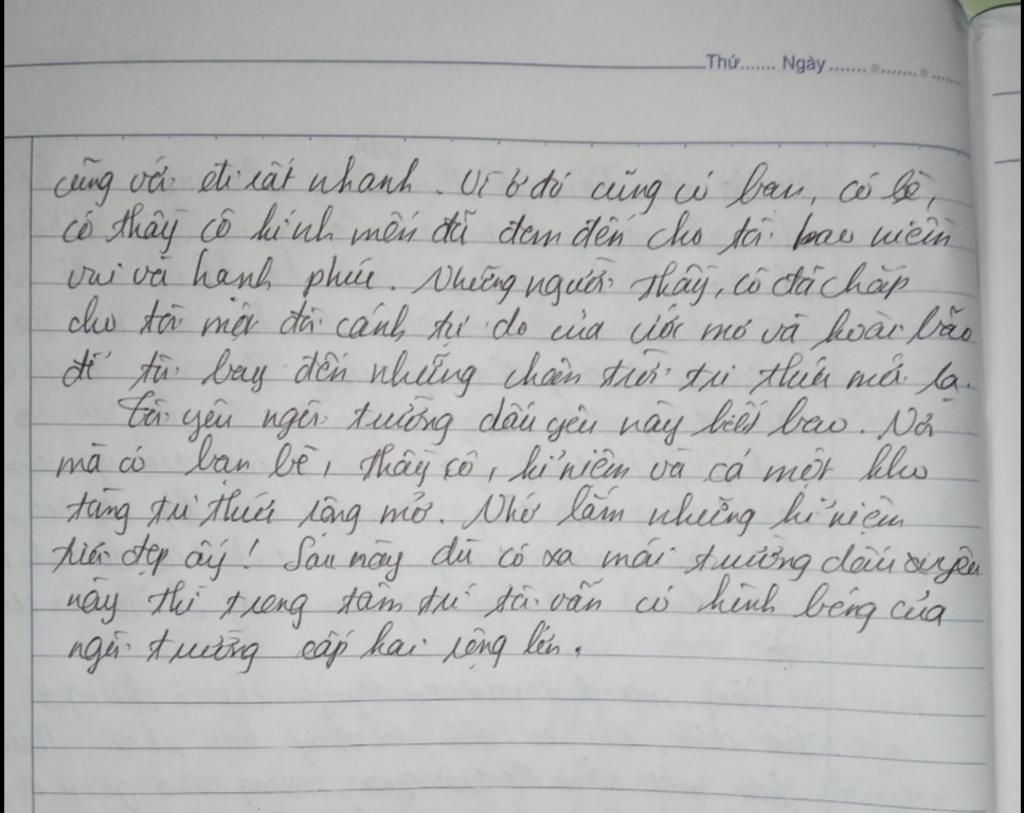 Thứ....... Ngày ....... ........ ......
cũng với đi rất nhanh. Vì ở đó cũng có bạn, có bè,
có thầy cô kính mến đã đem đến cho tôi bao niềm
vui và hạnh phúc. Những người thầy, cô đã chắp
cho tôi một đôi cánh tự do của ước mơ và hoài bão
để tôi bay đến những chân trời tri thức mới lạ.
Tôi yêu ngôi trường dấu yêu này biết bao. Nơi
mà có bạn bè, thầy cô, kỉ niệm và cả một kho
tàng tri thức rộng mở. Nhớ lắm những kỉ niệm
tươi đẹp ấy! Sau này dù có xa mái trường dấu yêu
này thì trong tâm trí tôi vẫn có hình bóng của
ngôi trường cấp hai rộng lớn.